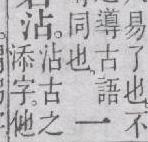 易了也不
導古語一
同也
沾。
沾古之
添字。他